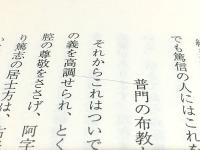 でも篤信の人にはこれを
普門の布教
それからこれはついで
の義を高調せられ、とく
腔の尊敬をささげ、阿字
り篤志の居士方は、